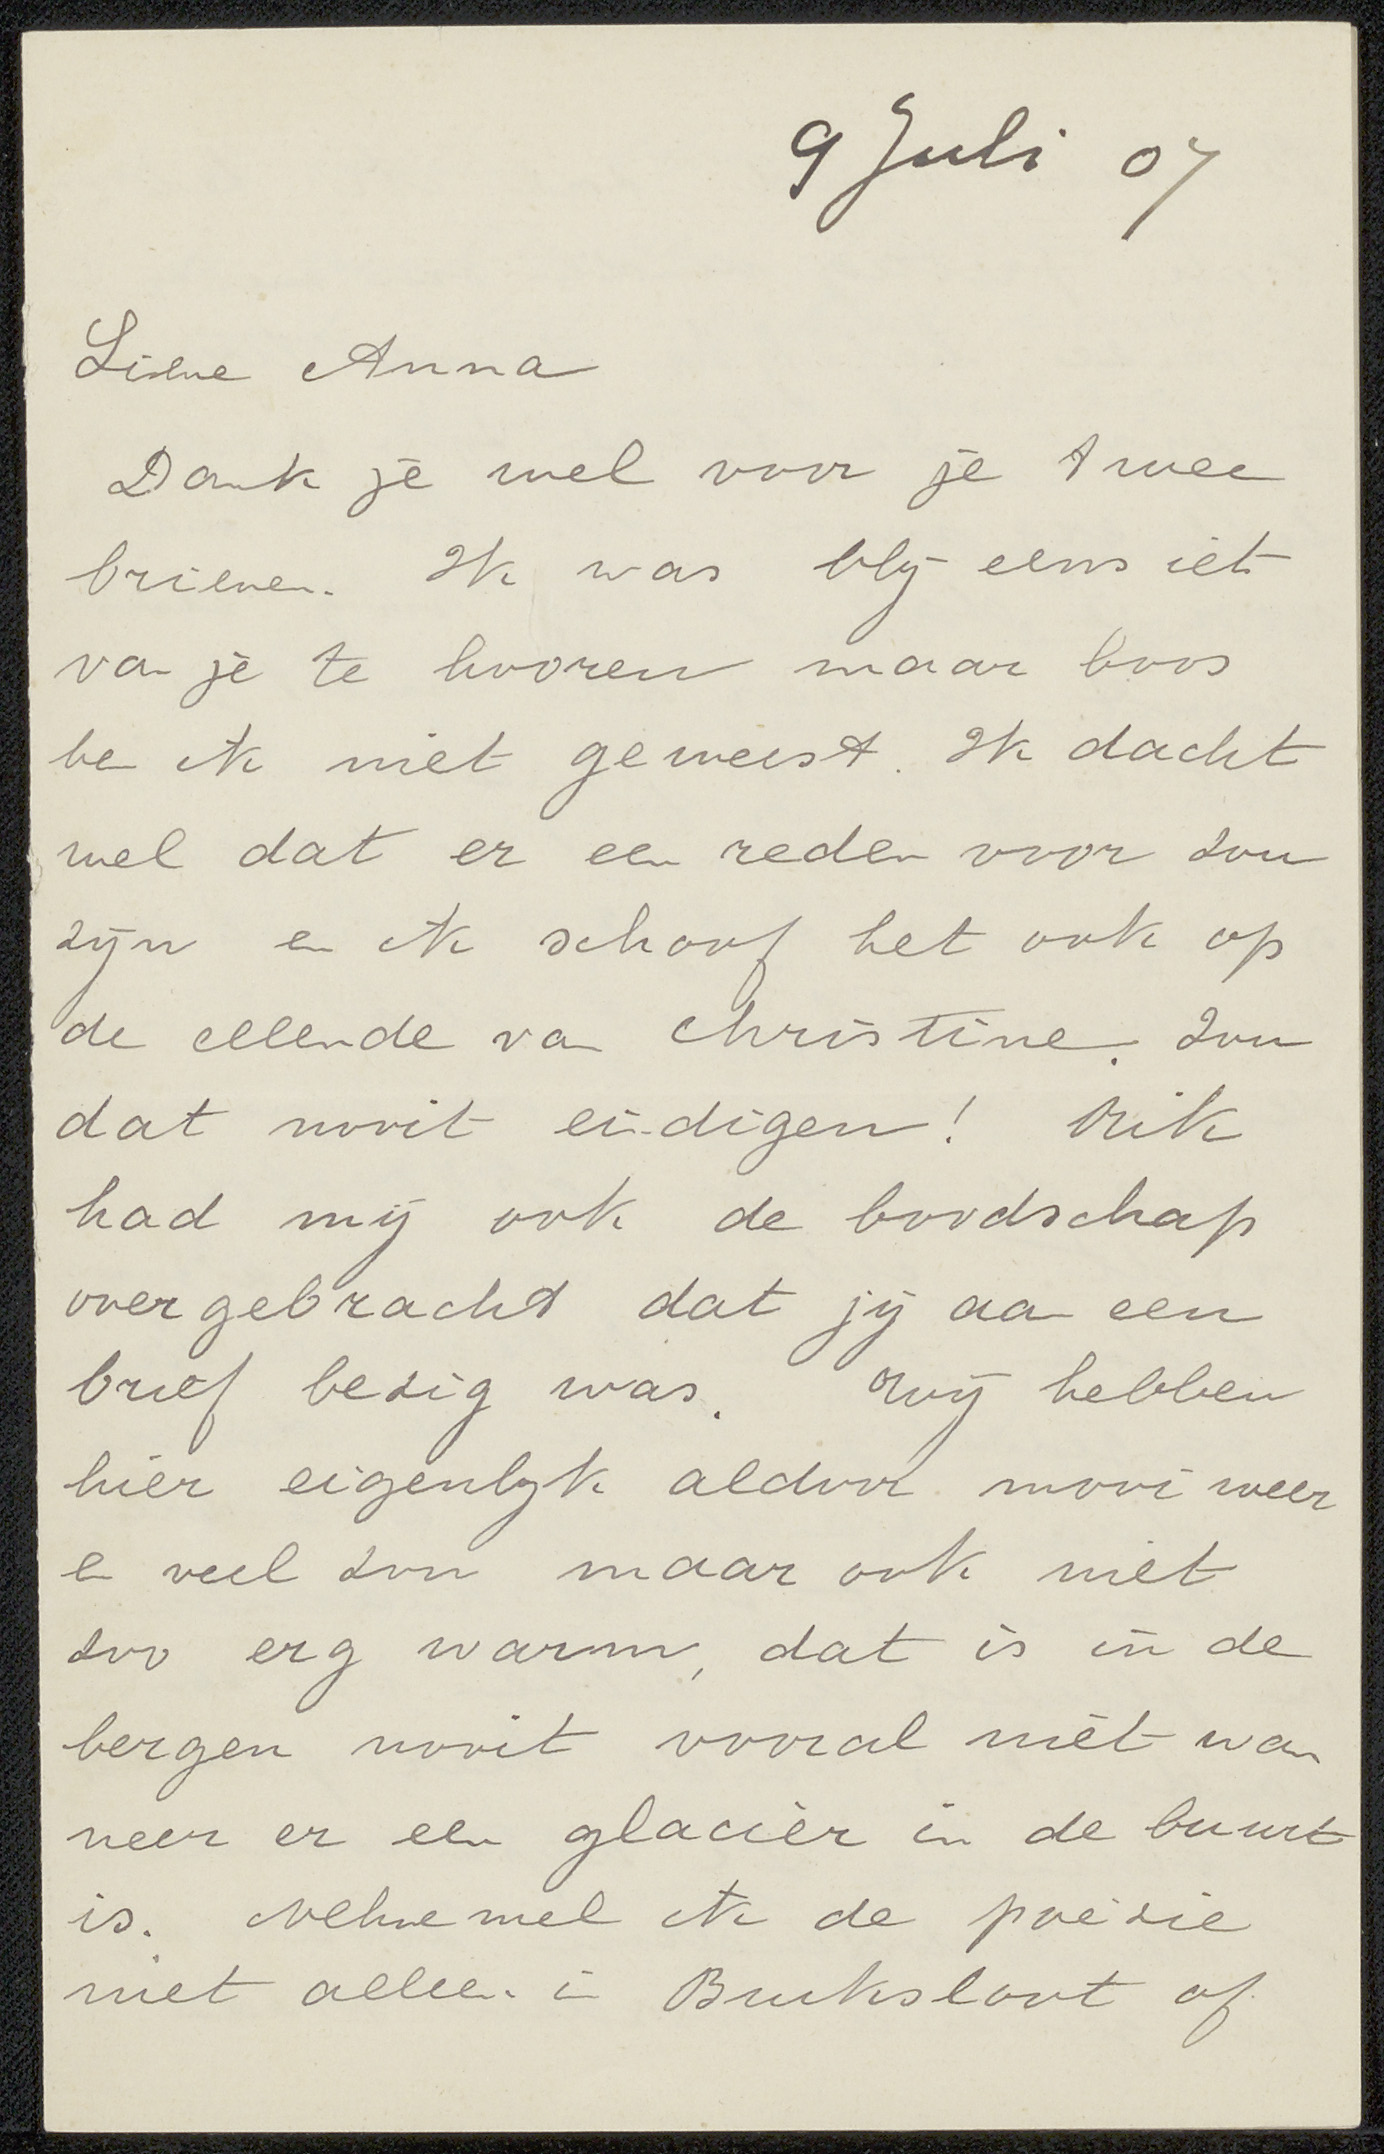 9 Juli 07
Lieve Anna
Dank je wel voor je twee
brieven. Ik was bly eens iets
van je te hooren maar boos
ben ik niet geweest. Ik dacht
wel dat er een reden voor zou
zijn en ik schoof het ook op
de ellende van Christine. Zou
dat nooit eindigen! Rik
had mij ook de boodschap
overgebracht dat jij aan een
brief bezig was. Wij hebben
hier eigenlyk aldoor mooi weer
en veel zon maar ook niet
zoo erg warm, dat is in de
bergen nooit vooral niet wan
neer er een glacier in de buurt
is. wel ik de poëzie
niet alleen in Buiksloot of